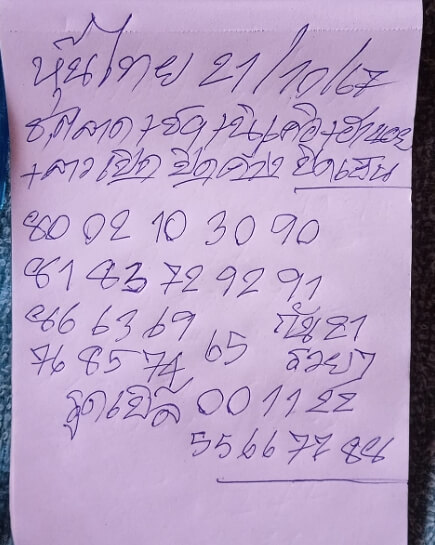 หุ้นไทย 21/10/67
ช่องตลาด + รัด + + + ฮานอย
+ ลาว เปิด ปิด ปิดเย็น
80 02 10 30 90
81 83 72 92 91
86 63 69 กัน 21
76 85 74 65 รวยๆ
รูดเบิ้ล 00 11 22
55 66 77 88